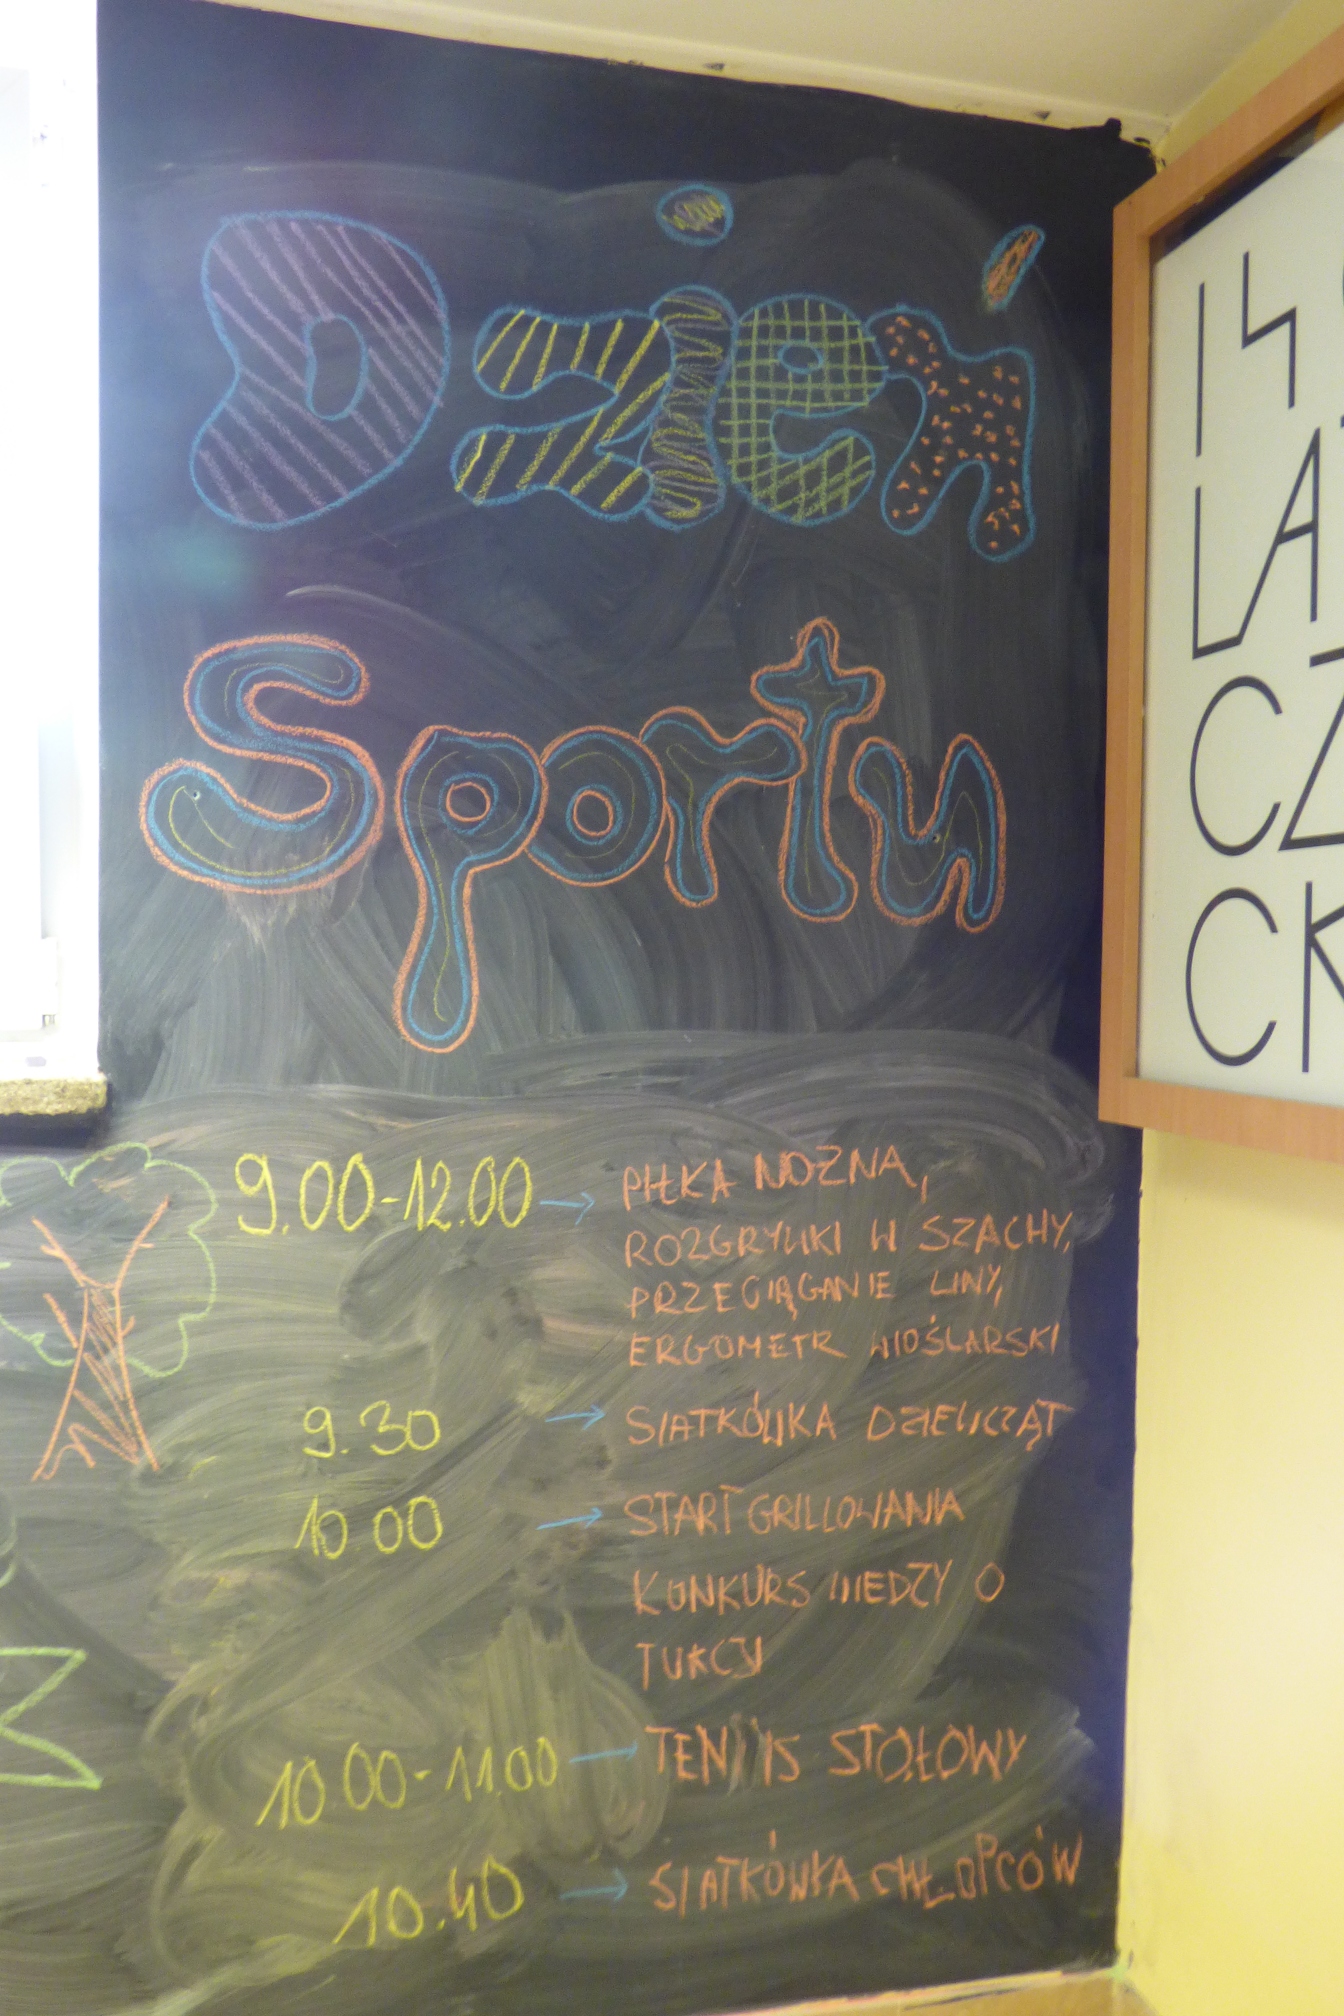 Dzień
Sportu
9.00-12.00 → PIŁKA NOŻNA,
ROZGRYWKI W SZACHY,
PRZECIĄGANIE LINY,
ERGOMETR WIOŚLARSKI
9.30 → SIATKÓWKA DZIEWCZĄT
10.00 → START GRILLOWANIA
KONKURS WIEDZY O
TURCJI
10.00-11.00 → TENIS STOŁOWY
10.40 → SIATKÓWKA CHŁOPCÓW
LA
CZ
CK